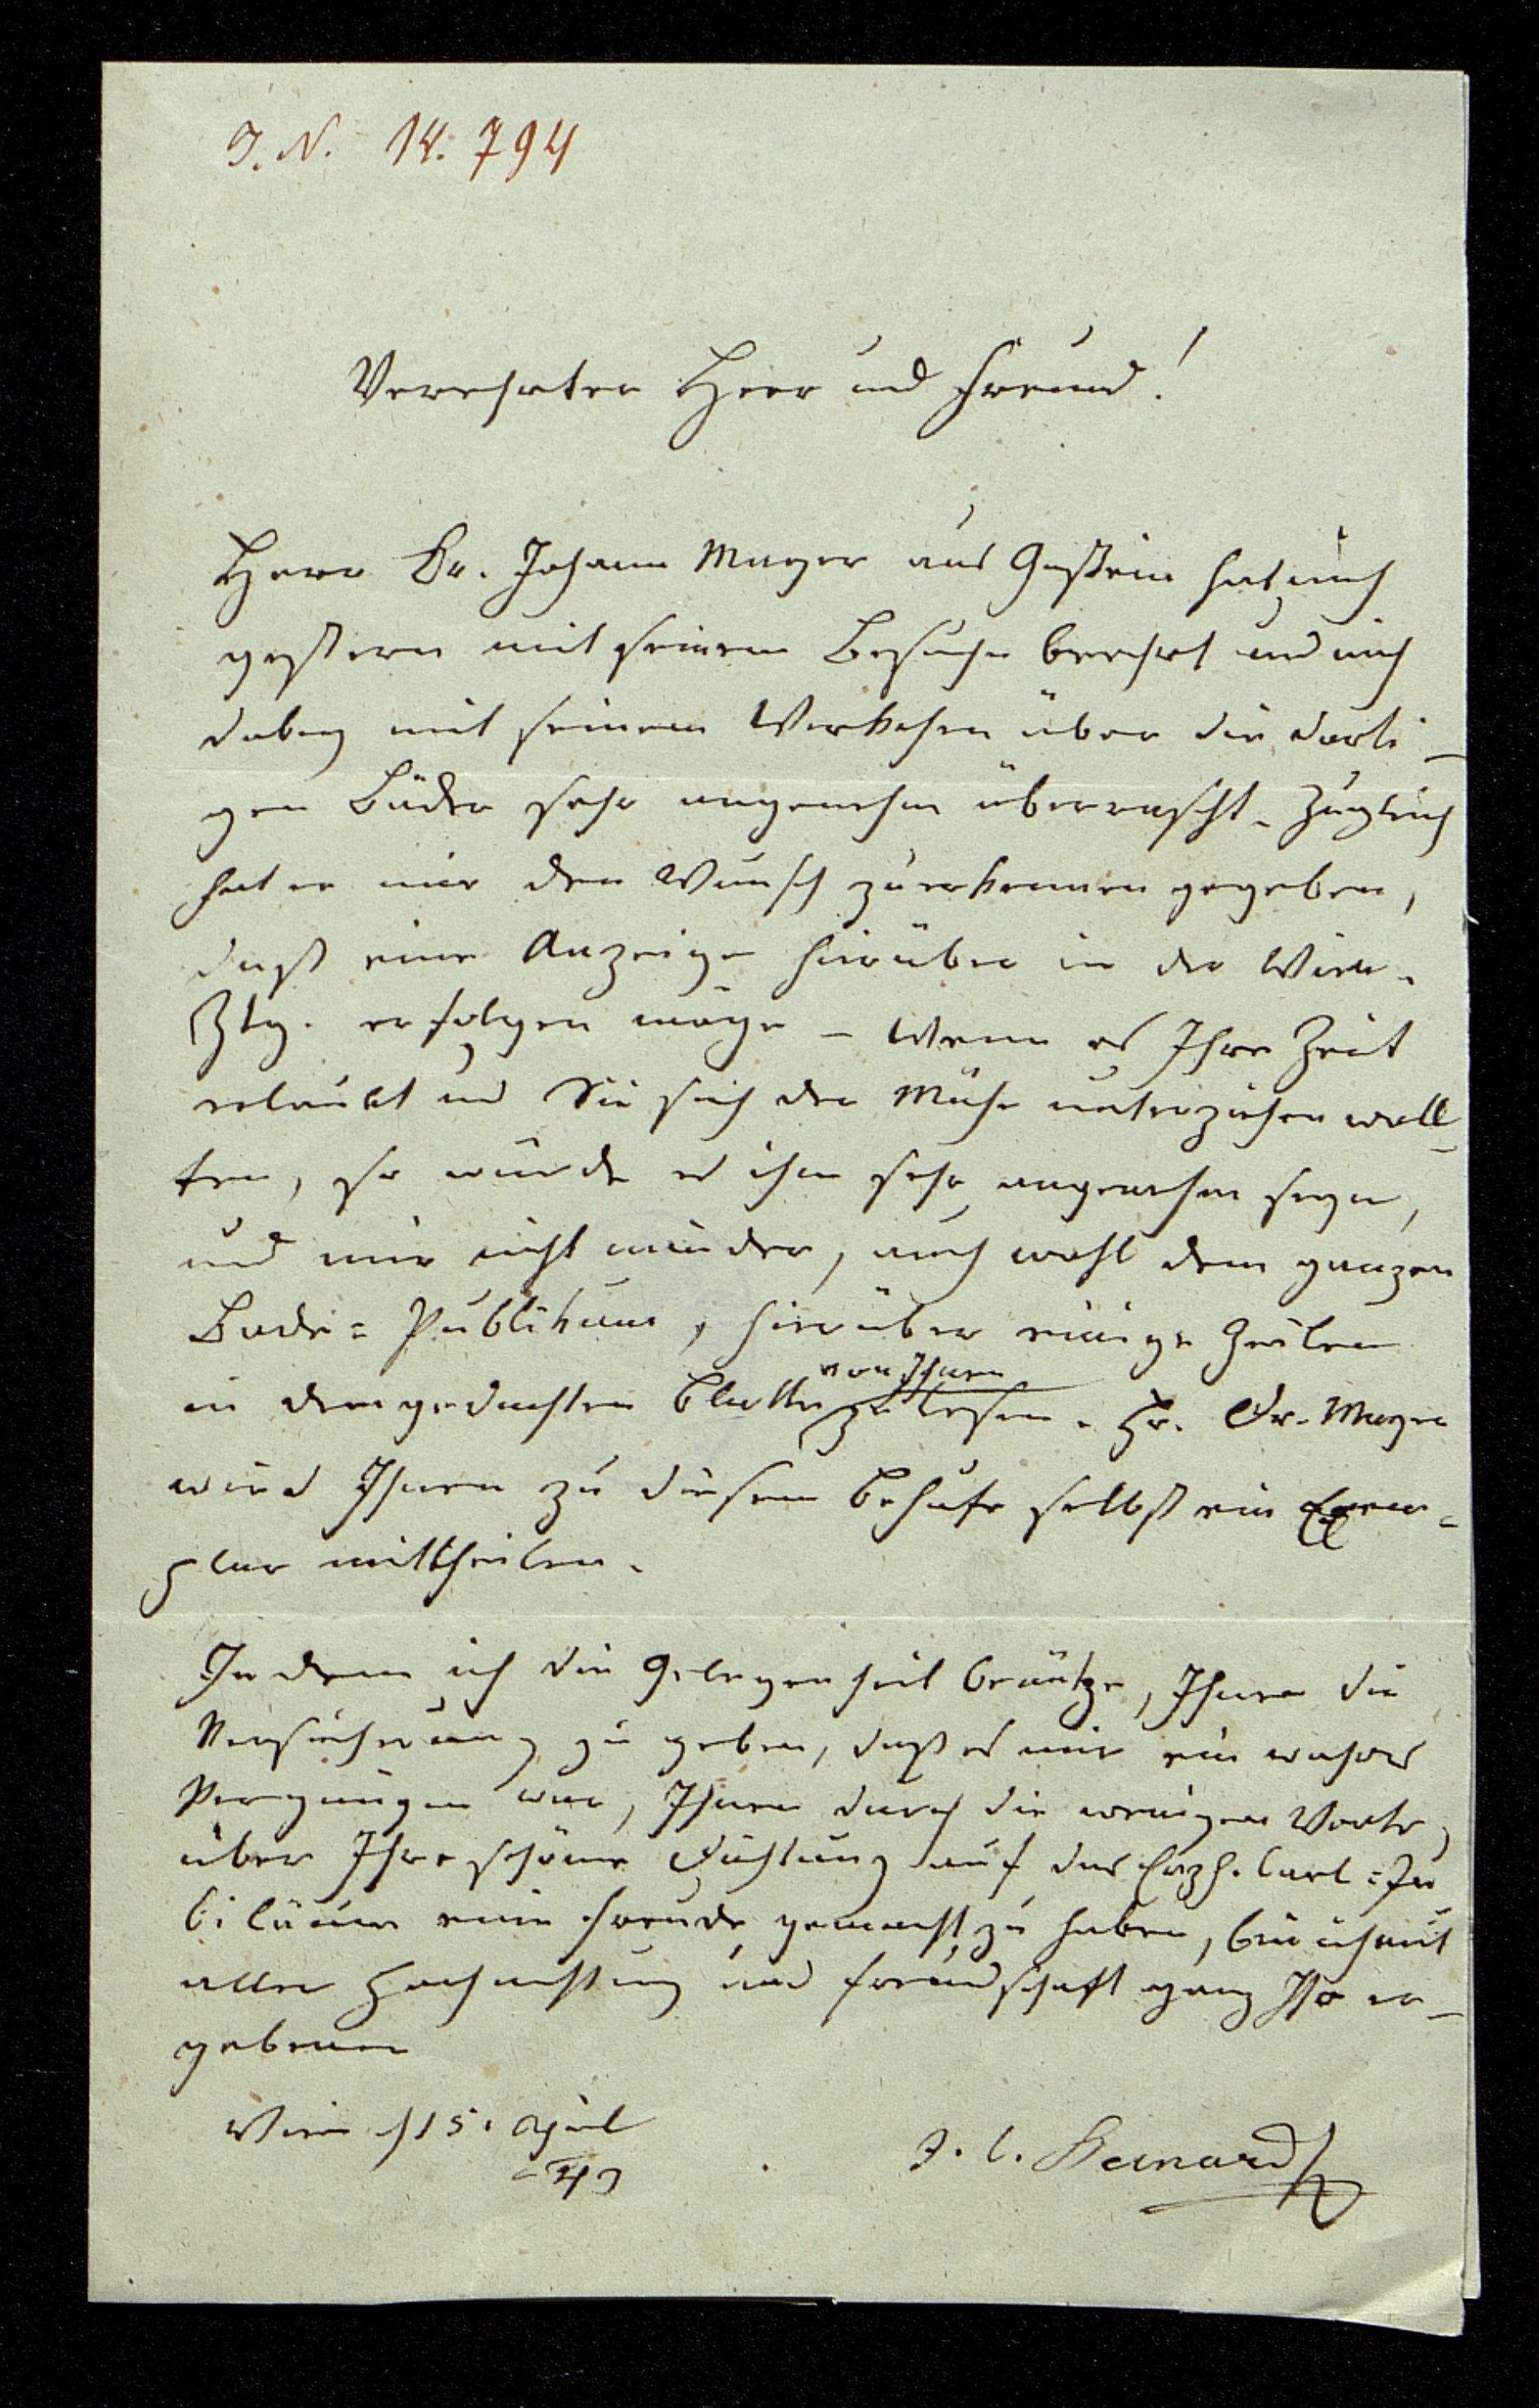 J. N. 14.794
Verehrter Herr und Freund!
Herr Dr. Johann Mayer aus Gastein hat mich
gestern mit seinem Besuche beehrt und mich
dabey mit seinem Werkchen über die dorti-
gen Bäder sehr angenehm überrascht. Zugleich
hat er mir den Wunsch zu erkennen gegeben,
daß eine Anzeige hierüber in der Wien.
Ztg. erfolgen möge – Wenn es Ihre Zeit
erlaubt und Sie sich der Mühe unterziehen woll-
ten, so würde es ihm sehr angenehm seyn,
und mir nicht minder, auch wohl dem ganzen
Bade=Publikum, hierüber einige Zeilen
von Ihnen
in dem gedachten Blatte zu lesen. Hr. Dr. Mayer
wird Ihnen zu diesem Behufe selbst ein Exem-
plar mittheilen.
Indem ich die Gelegenheit benütze, Ihnen die
Versicherung zu geben, daß es mir ein wahres
Vergnügen war, Ihnen durch die wenigen Worte
über Ihre schöne Dichtung auf das Erzh. Carl=Ju
biläum eine Freude gemacht zu haben, bin ich mit
aller Hochachtung und Freundschaft ganz Ihr er-
gebener
Wien 15. April
43
J. C. Bernard